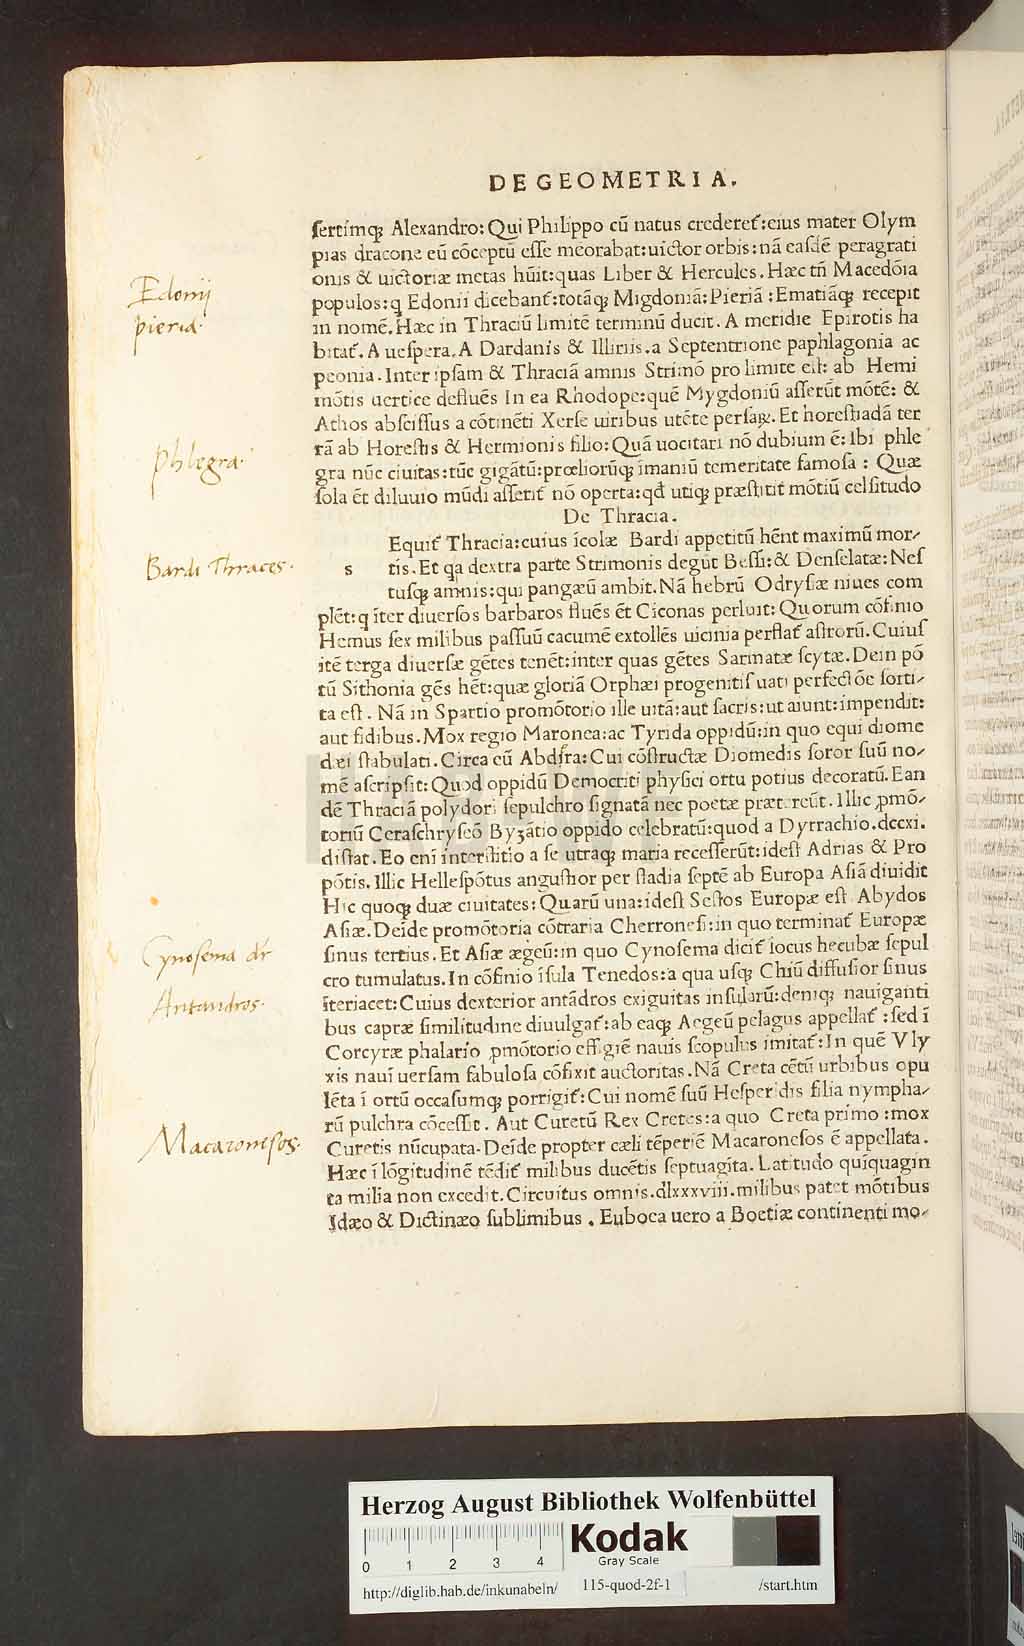 DE GEOMETRIA.
sertimq; Alexandro: Qui Philippo cū natus crederet᷑: eius mater Olym
pias dracone eū cōceptū esse meorabat: uictor orbis: nā easdē peragrati
onis & uictoriæ metas hūit: quas Liber & Hercules. Hæc tñ Macedōia
populos: q Edonii dicebant᷑: totāq; Migdoniā: Pieriā: Ematiāq; recepit
in nomē. Hæc in Thraciū limitē terminū ducit. A meridie Epirotis ha
bitat᷑. A uespera. A Dardanis & Illiriis. a Septentrione paphlagonia ac
peonia. Inter ipsam & Thraciā amnis Strimō pro limite est: ab Hemi
mōtis uertice defluēs In ea Rhodope: quē Mygdoniū asserūt mōtē: &
Athos abscissus a cōtinēti Xerse uiribus utēte persaꝝ. Et horestiadā ter
rā ab Horestis & Hermionis filio: Quā uocitari nō dubium ē: Ibi phle
gra nūc ciuitas: tūc gigātū: prœliorūq; īmaniū temeritate famosa: Quæ
sola ēt diluuio mūdi asserit᷑ nō operta: qđ utiq; præstitit mōtiū celsitudo
De Thracia.
Equit᷑ Thracia: cuius īcolæ Bardi appetitū hēnt maximū mor-
s tis. Et qa dextra parte Strimonis degūt Bessi: & Denselatæ: Nes
tusq; amnis: qui pangæū ambit. Nā hebrū Odrysæ niues com
plēt: q īter diuersos barbaros fluēs ēt Ciconas perluit: Quorum cōfinio
Hemus sex milibus passuū cacumē extollēs uicinia perflat᷑ astrorū. Cuius
itē terga diuersæ gētes tenēt: inter quas gētes Sarmatæ scytæ. Dein pō
tū Sithonia gēs hēt: quæ gloriā Orphæi progenitis uati perfectōe sorti-
ta est. Nā in Spartio promōtorio ille uitā: aut sacris: ut aiunt: impendit:
aut fidibus. Mox regio Maronea: ac Tyrida oppidū: in quo equi diome
dæi stabulati. Circa eū Abdira: Cui cōstructæ Diomedis soror suū no-
mē ascripsit: Quod oppidū Democriti physici ortu potius decoratū. Ean
dē Thraciā polydori sepulchro signatā nec poetæ prætereūt. Illic ꝓmō-
toriū Ceraschryseō Byzātio oppido celebratū: quod a Dyrrachio. dccxi.
distat. Eo eni interstitio a se utraq; maria recesserūt: idest Adrias & Pro
pōtis. Illic Hellespōtus angustior per stadia septē ab Europa Asiā diuidit
Hic quoq; duæ ciuitates: Quarū una: idest Sestos Europæ est Abydos
Asiæ. Deīde promōtoria cōtraria Cherronesi: in quo terminat᷑ Europæ
sinus tertius. Et Asiæ ægeū: in quo Cynosema dicit᷑ locus hecubæ sepul
cro tumulatus. In cōfinio īsula Tenedos: a qua usq; Chiū diffusior sinus
īteriacet: Cuius dexterior antādros exiguitas insularū: deniq; nauiganti
bus capræ similitudine diuulgat᷑: ab eaq; Aegeū pelagus appellat᷑: sed ī
Corcyræ phalario ꝓmōtorio effigiē nauis scopulus imitat᷑: In quē Vly
xis nauī uersam fabulosa cōfixit auctoritas. Nā Creta cētū urbibus opu
lēta ī ortū occasumq; porrigit᷑: Cui nomē suū Hesperidis filia nympha-
rū pulchra cōcessit. Aut Curetū Rex Cretes: a quo Creta primo: mox
Curetis nūcupata. Deīde propter cæli tēperiē Macaronesos ē appellata.
Hæc ī lōgitudinē tēdit᷑ milibus ducētis septuagita. Latitudo quīquagin
ta milia non excedit. Circuitus omnis. dlxxxviii. milibus patet mōtibus
Idæo & Dictinæo sublimibus. Euboea uero a Boetiæ continenti mo-
Edonij
pieria.
Phlegra.
Bardi Thraces.
Cynosema dr̄
Antandros.
Macaronesos.
HAB WF
Herzog August Bibliothek Wolfenbüttel
0 1 2 3 4
Kodak
Gray Scale
http://diglib.hab.de/inkunabeln/ 115-quod-2f-1 /start.htm